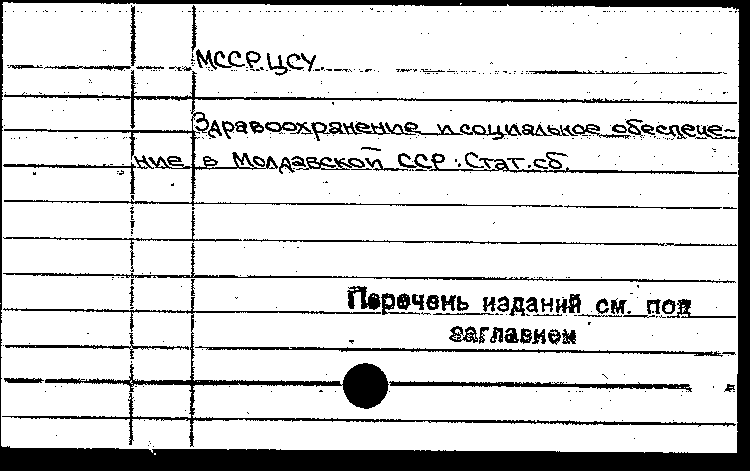 МССР. ЦСУ.
Здравоохранение и социальное обеспече-
ние в Молдавской ССР: Стат. сб.
Перечень изданий см. под
заглавием